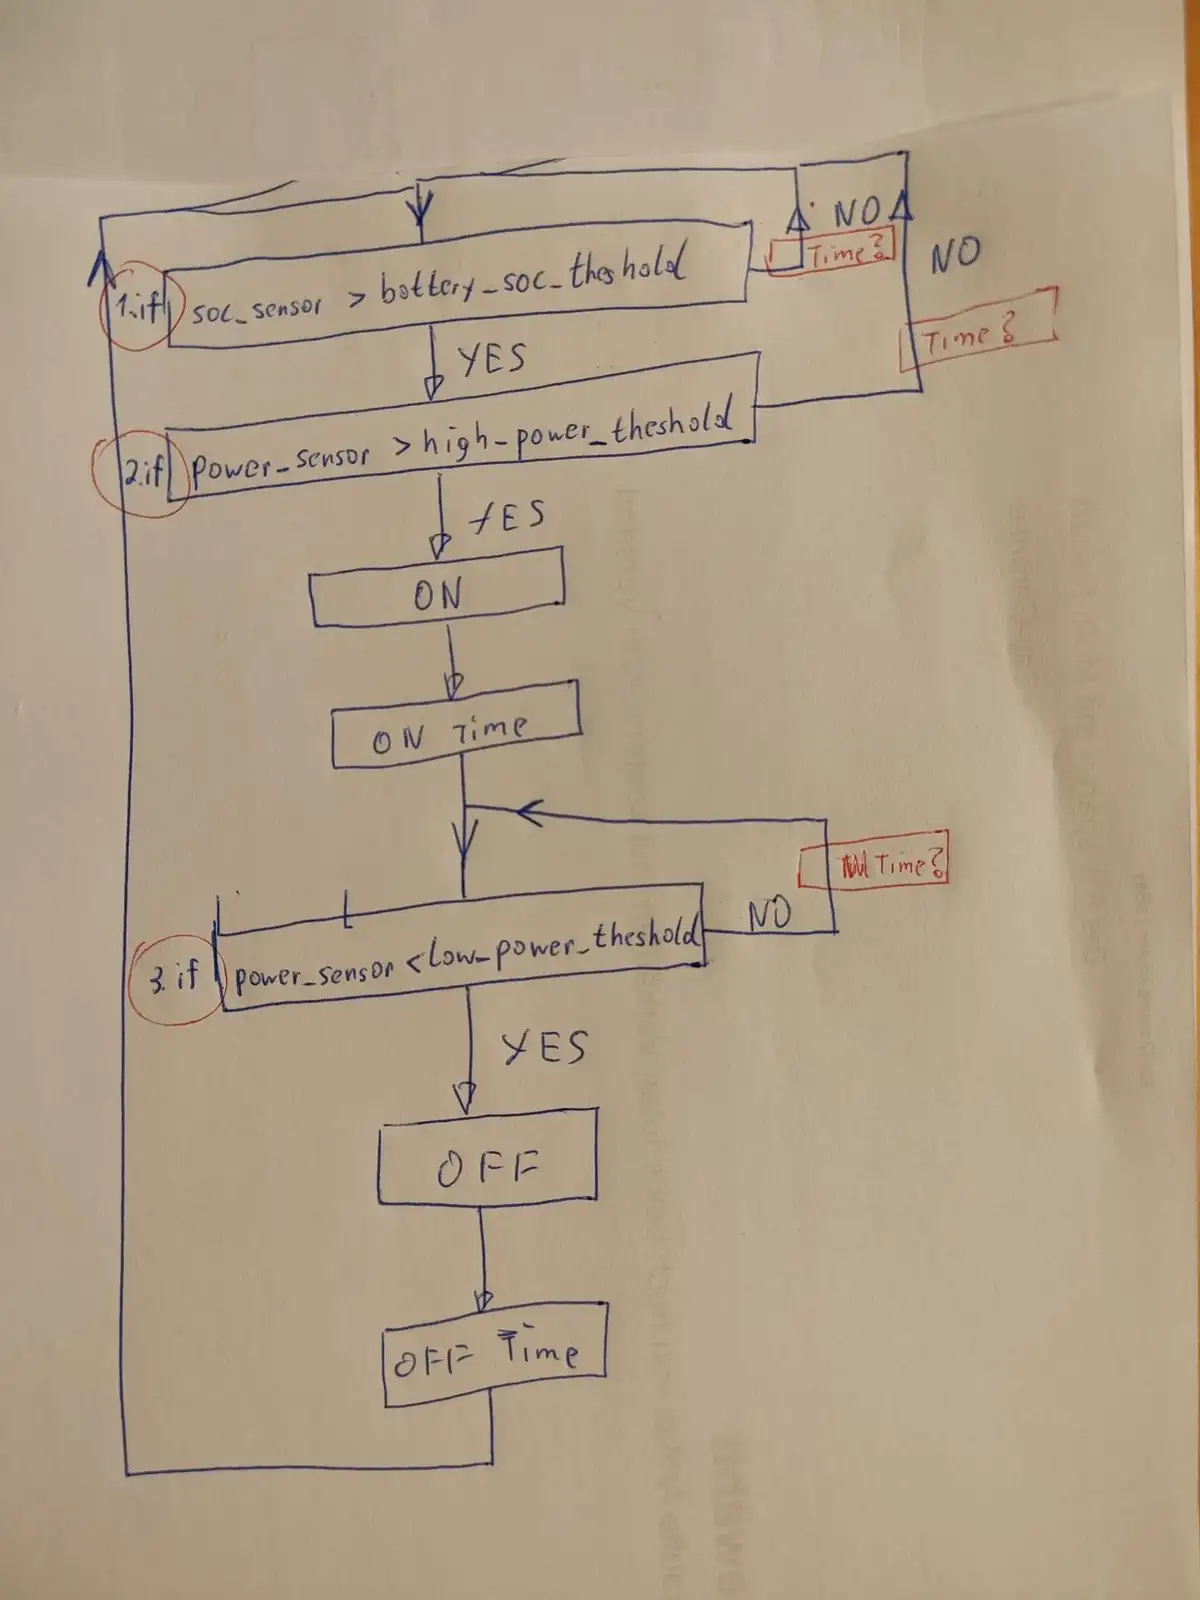 NO
Time?
1.if soc_sensor > battery_soc_theshold
NO
Time?
YES
2.if power_sensor > high-power_theshold
YES
ON
ON Time
Time?
NO
3.if power_sensor < low_power_theshold
YES
OFF
OFF Time